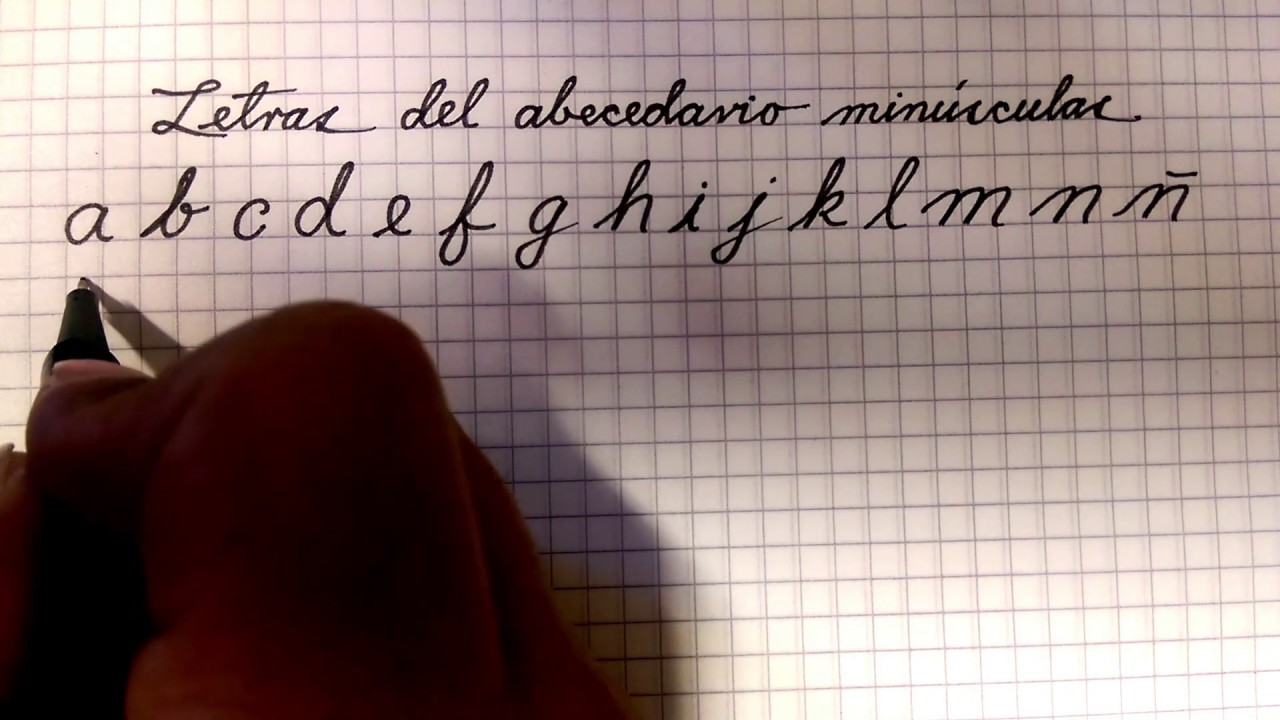 Letras del abecedario minúsculas
a b c d e f g h i j k l m n ñ